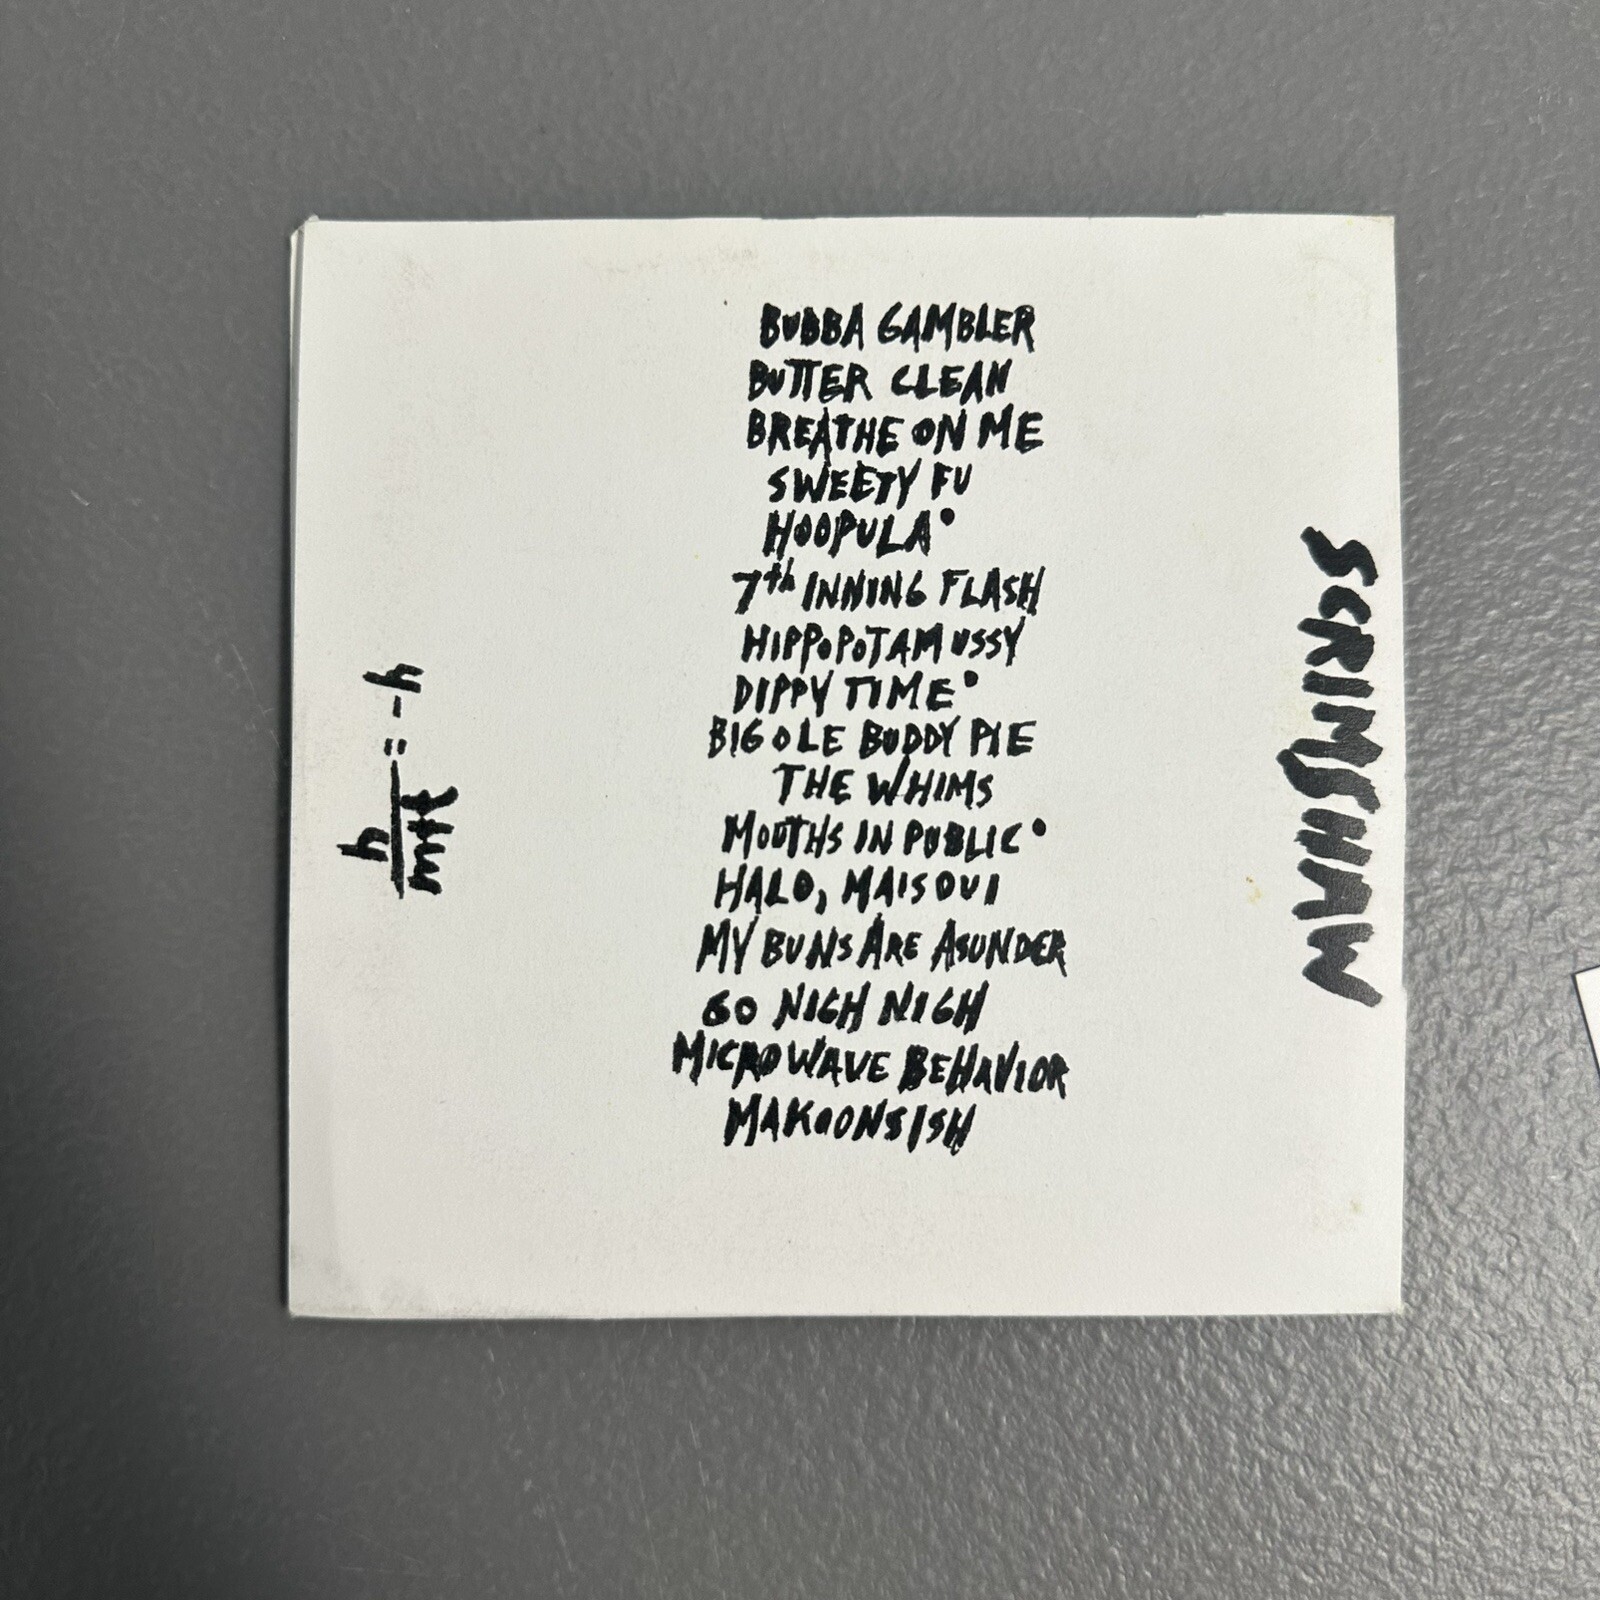 BUBBA GAMBLER
BUTTER CLEAN
BREATHE ON ME
SWEETY FU
HOOPULA•
7th INNING FLASH
HIPPOPOTAMUSSY
DIPPY TIME•
BIG OLE BUDDY PIE
THE WHIMS
MOUTHS IN PUBLIC•
HALO, MAISOUI
MY BUNS ARE ASUNDER
GO NIGH NIGH
MICROWAVE BEHAVIOR
MAKOONSISH
SCRIMSHAW